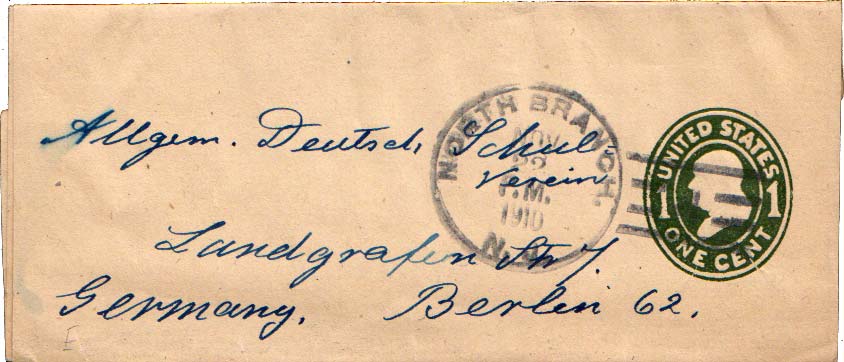 Allgem. Deutsch. Schul-
Verein
Landgrafen Str 7.
Germany. Berlin 62.
NORTH BRANCH.
NOV
22
P.M.
1910
UNITED STATES
1 1
ONE CENT
E